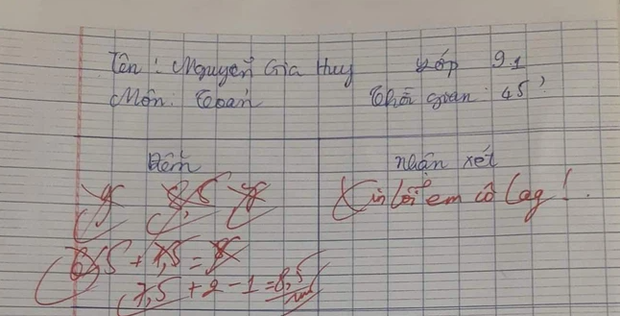 Tên: Nguyễn Gia Huy Lớp 9.1
Môn: Toán Thời gian: 45'
Điểm nhận xét
8,5
Xin lỗi em cô lag!
6,5 + 1,5 = 8
7,5 + 2 - 1 = 8,5